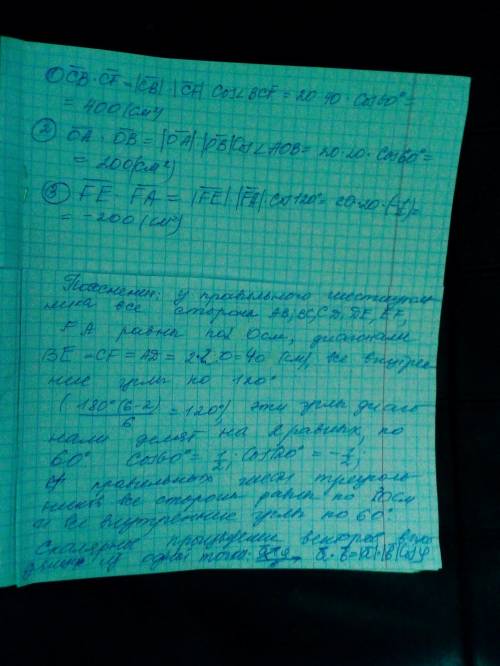 ① C̅B̅ · C̅F̅ = |C̅B̅| |C̅F̅| cos∠BCF = 20·40·cos60°=
= 400 (см²)
② O̅A̅ · O̅B̅ = |O̅A̅| |O̅B̅| cos∠AOB = 20·20·cos60°=
= 200 (см²)
③ F̅E̅ · F̅A̅ = |F̅E̅| |F̅A̅| · cos120° = 20·20·(-1/2)=
= -200 (см²)
Пояснения: у правильного шестиуголь
ника все стороны AB, BC, CD, DE, EF,
FA равны по 20см, диагонали
BE = CF = AD = 2·20=40 (см), все внутрен
ние углы по 120°
(180°(6-2)/6 = 120°) эти углы диаго
нали делят на 2 равных, по
60° cos60° = 1/2; cos120° = -1/2;
У правильных шести треуголь
ников все стороны равны по 20см
и все внутренние углы по 60°
Скалярное произведение векторов
из одной точки a̅·b̅=|a̅|·|b̅|cosφ